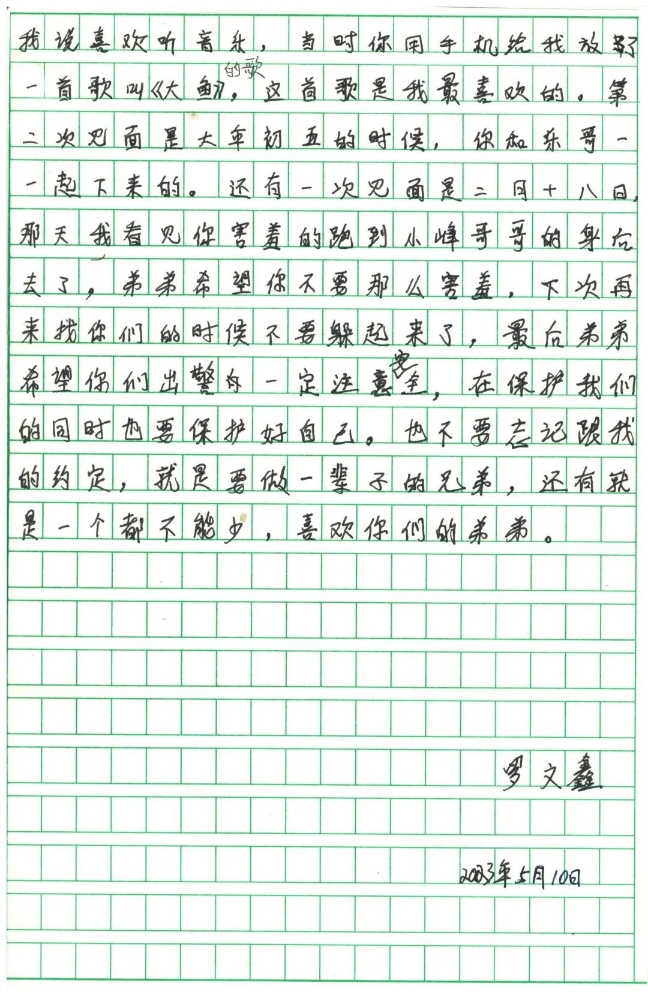 我说喜欢听音乐，当时你用手机给我放了
一首歌叫《大鱼》的歌，这首歌是我最喜欢的。第
二次见面是大年初五的时候，你和东哥一
一起下来的。还有一次见面是二月十八日，
那天我看见你害羞的跑到小峰哥哥的身后
去了，弟弟希望你不要那么害羞，下次再
来找你们的时候不要躲起来了，最后弟弟
希望你们出警时一定注意安全，在保护我们
的同时也要保护好自己。也不要忘记跟我
的约定，就是要做一辈子的兄弟，还有就
是一个都不能少，喜欢你们的弟弟。
罗文鑫
2023年5月10日